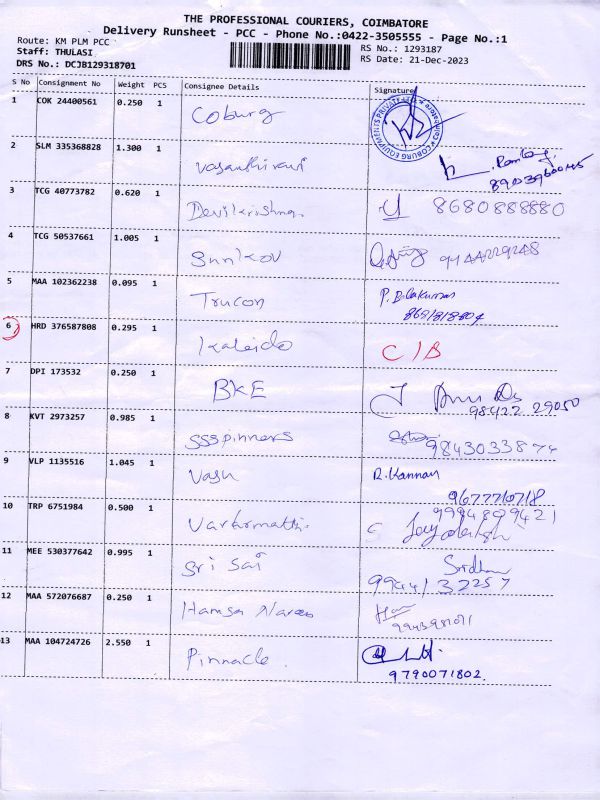 THE PROFESSIONAL COURIERS, COIMBATORE
Delivery Runsheet - PCC - Phone No.:0422-3505555 - Page No.:1
Route: KM PLM PCC
RS No.: 1293187
Staff: THULASI
RS Date: 21-Dec-2023
DRS No.: DCJB129318701
S No Consignment No Weight PCS Consignee Details Signature
1 COK 24400561 0.250 1 Coburg
COBURG EQUIPMENTS PRIVATE
2 SLM 335368828 1.300 1 Vasanthi
3 TCG 40773782 0.620 1 Devikrishna 8680888880
4 TCG 50537661 1.005 1
5 MAA 102362238 0.095 1 Trucon P. Balakumar
6 HRD 376587808 0.295 1 Kaleido C/B
7 DPI 173532 0.250 1 BKE
98422 29050
8 KVT 2973257 0.985 1 SSSpinners
9843033874
9 VLP 1135516 1.045 1 Vasu R. Kannan
9677710718
10 TRP 6751984 0.500 1
9994809421
11 MEE 530377642 0.995 1 Sri Sai Sridhar
9944132257
12 MAA 572076687 0.250 1 Hamsa
13 MAA 104724726 2.550 1 Pinnacle.
9790071802.